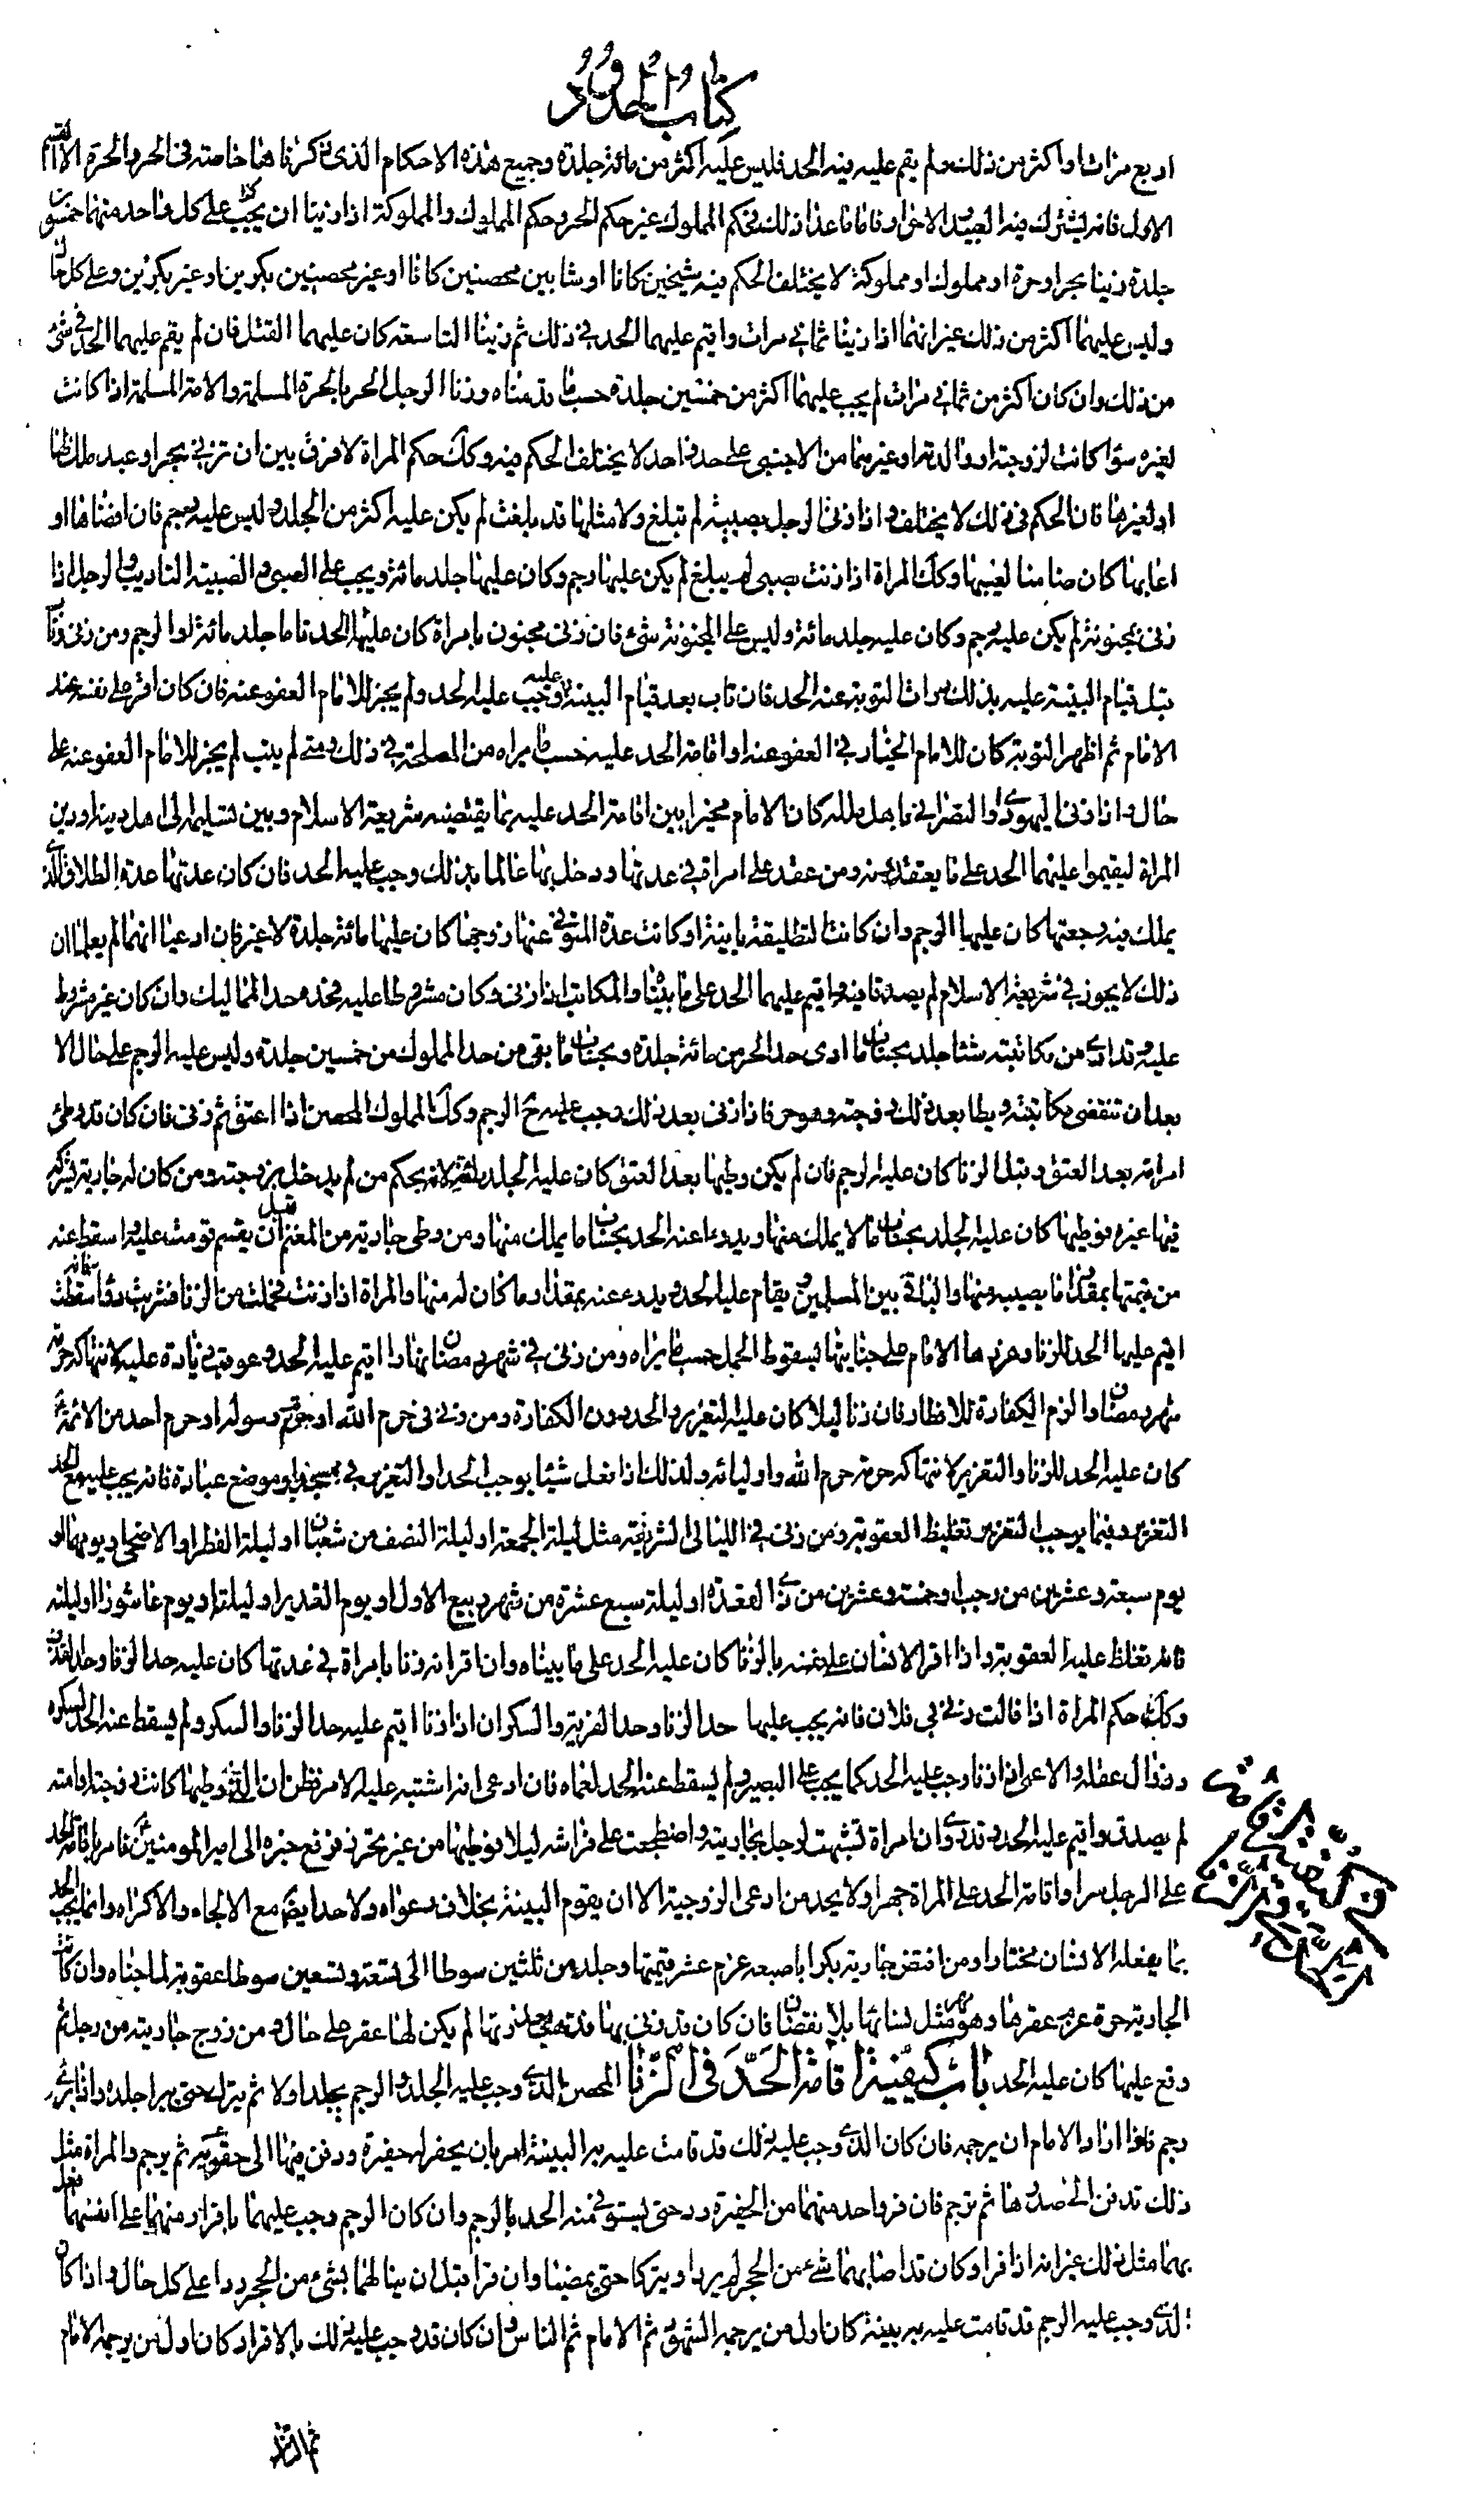 كتاب الحدود
اربع مرات او اكثر من ذلك ولم يقم عليه فيه الحد فليس عليه اكثر من مائة جلدة وجميع هذه الاحكام الذى ذكرناها خاصته فى الحر والحرة الا القسم
الاول فانه يشترك فيه العبيد الاحرار فاما ما عدا ذلك فحكم المملوك غير حكم الحر وحكم المملوك والمملوكة اذا زنيا ان يجب على كل واحد منهما خمسون
جلدة زنيا بحر او حرة او مملوك او مملوكة لا يختلف الحكم فيه شيخين كانا او شابين محصنين كانا او غير محصنين بكرين او غير بكرين وعلى كل حال
وليس عليهما اكثر من ذلك غير انهما اذا زنيا ثمانى مرات واقيم عليهما الحد فى ذلك ثم زنيا التاسعة كان عليهما القتل فان لم يقم عليهما الحد فى شئ
من ذلك وان كان اكثر من ثمانى مرات لم يجب عليهما اكثر من خمسين جلدة حسب ما قدمناه وزنا الرجل الحر بالحرة المسلمة والامة المسلمة اذا كانت
لغيره سواء كانت لزوجته او والديه او غيرهما من الاجنبى على حد واحد لا يختلف الحكم فيه وكك حكم المراة لا فرق بين ان تزنى بحر او عبد ملك لها
او لغيرها فان الحكم فى ذلك لا يختلف واذا زنى الرجل بصبية لم تبلغ ولا مثلها قد بلغت لم يكن عليه اكثر من الجلد وليس عليه رجم فان افضاها او
اعابها كان ضامنا لعيبها وكك المراة اذا زنت بصبى لم يبلغ لم يكن عليها رجم وكان عليها جلد مائة ويجب على الصبى والصبية التاديب والرجل اذا
زنى بمجنونة لم يكن عليه رجم وكان عليه جلد مائة وليس على المجنونة شئ فان زنى مجنون بامراة كان عليه الحد تاما جلد مائة او الرجم ومن زنى وتاب
قبل قيام البينة عليه بذلك درات التوبة عنه الحد فان تاب بعد قيام البينة عليه وجب عليه الحد ولم يجز للامام العفو عنه فان كان اقر على نفسه عند
الامام ثم اظهر التوبة كان للامام الخيار فى العفو عنه او اقامة الحد عليه حسب ما يراه من المصلحة فى ذلك ومتى لم يتب لم يجز للامام العفو عنه على
حال واذا زنى اليهودى او النصرانى باهل ملته كان الامام مخيرا بين اقامة الحد عليه بما يقتضيه شريعة الاسلام وبين تسليمه الى اهل دينه او دين
المراة ليقيموا عليهما الحد على ما يعتقدونه ومن عقد على امراة فى عدتها ودخل بها عالما بذلك وجب عليه الحد فان كان عدتها عدة الطلاق الذى
يملك فيه رجعتها كان عليها الرجم وان كانت التطليقة باينة او كانت عدة المتوفى عنها زوجها كان عليها مائة جلدة لا غير فان ادعيا انهما لم يعلما ان
ذلك لا يجوز فى شريعة الاسلام لم يصدقا فيه واقيم عليهما الحد على ما بيناه والمكاتب اذا زنى وكان مشروطا عليه فحده حد المماليك وان كان غير مشروط
عليه وقد ادى من مكاتبته شيئا جلد بحساب ما ادى حد الحر من مائة جلدة وبحساب ما بقى من حد المملوك من خمسين جلدة وليس عليه الرجم على حال الا
بعد ان تنقضى مكاتبته ويطا بعد ذلك زوجته وهو حر فاذا زنى بعد ذلك وجب عليه ح الرجم وكك المملوك المحصن اذا اعتق ثم زنى فان كان قد وطئ
امراته بعد العتق وقبل الزنا كان عليه الرجم فان لم يكن وطيها بعد العتق كان عليه الجلد مائة لانه بحكم من لم يدخل بزوجته ومن كان له جارية يشركه
فيها غيره فوطيها كان عليه الجلد بحساب ما لا يملك منها ويدرء عنه الحد بحساب ما يملك منها ومن وطى جارية من المغنم قبل ان يقسم قومت عليه واسقط عنه
من قيمتها بمقدار ما يصيبه منها والباقى بين المسلمين ويقام عليه الحد ويدرء عنه بمقدار ما كان له منها والمراة اذا زنت فحملت من الزنا فشربت دواء فاسقطت
اقيم عليها الحد للزنا وعزرها الامام على جنايتها بسقوط الحمل حسب ما يراه ومن زنى فى شهر رمضان نهارا اقيم عليه الحد وعوقب زيادة عليه لانتهاكه حرمة
شهر رمضان والزم الكفارة للافطار فان زنا ليلا كان عليه التعزير والحد دون الكفارة ومن زنى فى حرم الله او حرم رسوله او حرم احد من الائمة
كان عليه الحد للزنا والتعزير لانتهاكه حرمة حرم الله واوليائه وكذلك اذا فعل شيئا يوجب الحد او التعزير فى مسجد او موضع عبادة فانه يجب عليه مع الحد
التعزير وفيما يوجب التعزير تغليظ العقوبة ومن زنى فى الليالى الشريفة مثل ليلة الجمعة او ليلة النصف من شعبان او ليلة الفطر او الاضحى او يومهما او
يوم سبعة وعشرين من رجب او خمسة وعشرين من ذى القعدة او ليلة سبع عشرة من شهر ربيع الاول او يوم الغدير او ليلته او يوم عاشورا او ليلته
فانه تغلظ عليه العقوبة واذا اقر الانسان على نفسه بالزنا كان عليه الحد على ما بيناه وان اقر انه زنا بامراة فى عدتها كان عليه حد الزنا وحد القذف
وكك حكم المراة اذا قالت زنى بى فلان فانه يجب عليها حد الزنا وحد الفرية والسكران اذا زنا اقيم عليه حد الزنا والسكر ولم يسقط عنه الحد لسكره
وزوال عقله والاعمى اذا زنا وجب عليه الحد كما يجب على البصير ولم يسقط عنه الحد لعماه فان ادعى انه اشتبه عليه الامر فظن ان التى وطيها كانت زوجته او امته
لم يصدق واقيم عليه الحد وقد روى ان امراة تشبهت لرجل بجاريته واضطجعت على فراشه ليلا فوطيها من غير تحرز فرفع خبره الى امير المومنين ع فامر باقامة الحد
على الرجل سرا واقامة الحد على المراة جهرا ولا يحد من ادعى الزوجية الا ان يقوم البينة بخلاف دعواه ولا حد ايضا مع الالجاء والاكراه وانما يجب الحد
بما يفعله الانسان مختارا ومن افتض جارية بكرا باصبعه غرم عشر قيمتها وجلد من ثلثين سوطا الى تسعة وتسعين سوطا عقوبة لما جناه وان كانت
الجارية حرة غرم عقرها وهو مهر مثل نسائها بلا نقصان فان كان قد زنى بها فذهب بعذرتها لم يكن لها عقر على حال ومن زوج جاريته من رجل ثم
وقع عليها كان عليه الحد باب كيفية اقامة الحد فى الزنا المحصن الذى وجب عليه الجلد والرجم يجلد اولا ثم يترك حتى يبرا جلده فاذا برئ
رجم فاذا اراد الامام ان يرجمه فان كان الذى وجب عليه ذلك قد قامت عليه به البينة امر بان يحفر له حفيرة ودفن فيها الى حقويه ثم يرجم والمراة مثل
ذلك تدفن الى صدرها ثم ترجم فان فر واحد منهما من الحفيرة رد حتى يستوفى منه الحد بالرجم وان كان الرجم وجب عليهما باقرار منهما على انفسهما فعل
بهما مثل ذلك غير انه اذا فرا وكان قد اصابهما شئ من الحجر لم يردا ويتركا حتى يمضيا وان فرا قبل ان ينالهما بشئ من الحجر ردا على كل حال واذا كان
الذى وجب عليه الرجم قد قامت عليه به بينة كان اول من يرجمه الشهود ثم الامام ثم الناس وان كان قد وجب عليه ذلك بالاقرار كان اول من يرجمه الامام